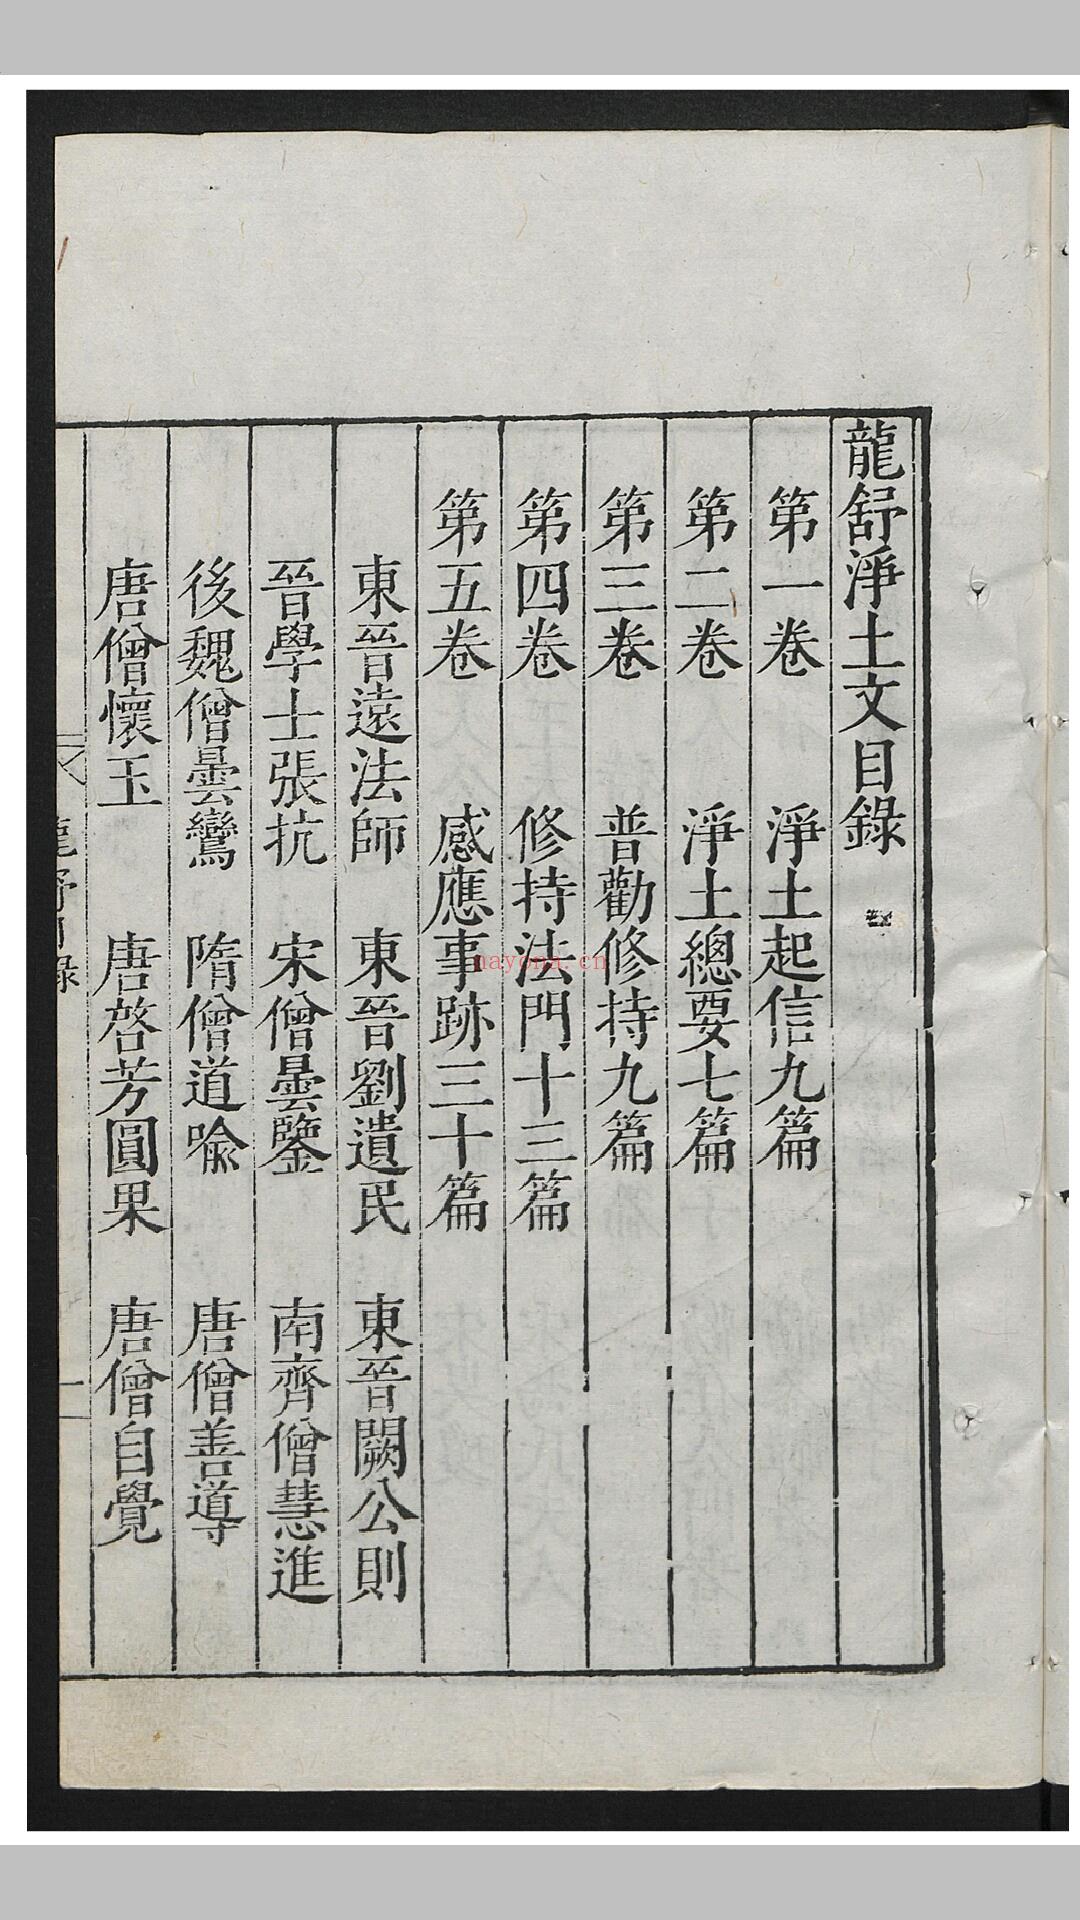 龍舒淨土文目錄
第一卷 淨土起信九篇
第二卷 淨土總要七篇
第三卷 普勸修持九篇
第四卷 修持法門十三篇
第五卷 感應事跡三十篇
東晉遠法師 東晉劉遺民 東晉闕公則
晉學士張抗 宋僧曇鑒 南齊僧慧進
後魏僧曇鸞 隋僧道喻 唐僧善導
唐僧懷玉 唐啓芳圓果 唐僧自覺
龍舒目錄 一
nayona.cn